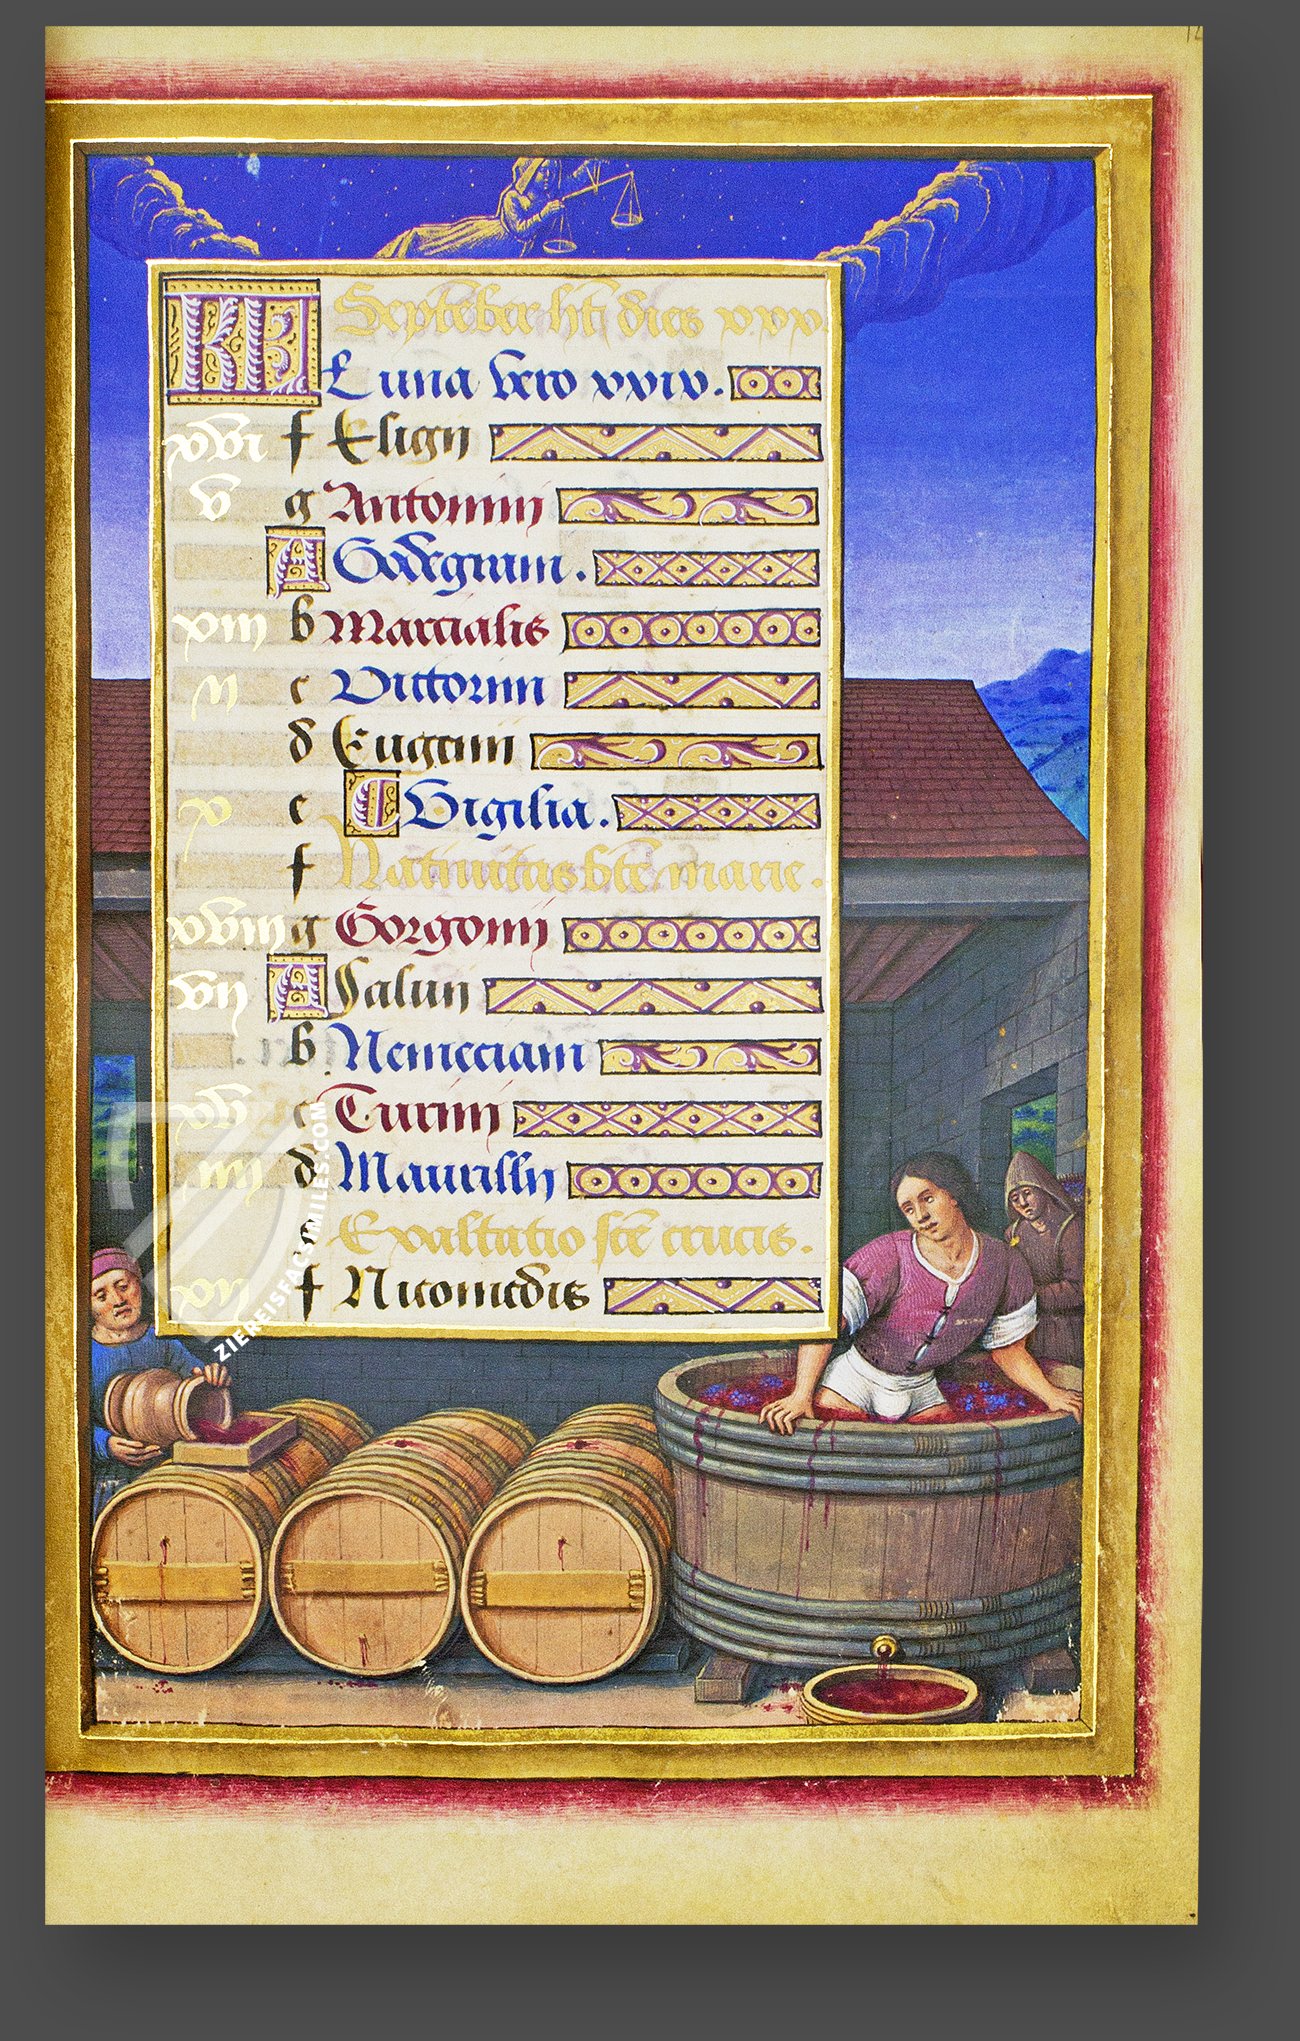 KL Septēber hт̄ dies xxx.
Luna vero xxix.
xvi f Eligij
v g Antonini
A Godegrani.
xiii b Marcialis
ii c Victorini
d Eugenii
x e C Vigilia.
f Natiuitas bте̄ marie.
xviii g Gorgonij
vii A Saluii
b Nemeciani
xv c Turini
iiii d Maurilij
e Exaltatio scē crucis.
xii f Nicomedis
ZIEREISFACSIMILES.COM